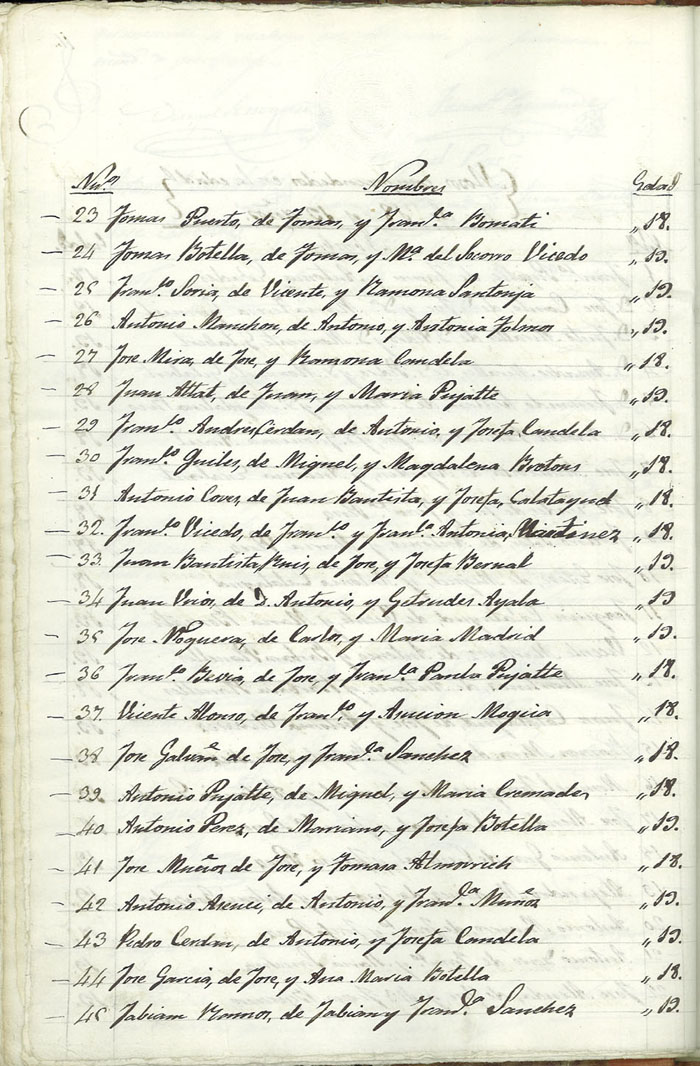 Nu.º Nombres Edad
23 Tomas Puerto, de Tomas, y Fran.ca Bomati „18.
24 Tomas Botella, de Tomas, y M.a del Socorro Vicedo „19.
25 Fran.co Soria, de Vicente, y Ramona Santonja „19.
26 Antonio Manchon, de Antonio, y Antonia Tolmos „19.
27 Jose Mira, de Jose, y Ramona Candela „18.
28 Juan Abbat, de Juan, y Maria Pujalte „19.
29 Fran.co Andres Cerdan, de Antonio, y Josefa Candela „18.
30 Fran.co Guiles, de Miguel, y Magdalena Brotons „18.
31 Antonio Coves, de Juan Bautista, y Josefa, Calatayud „18.
32. Fran.co Vicedo, de Fran.co y Fran.ca Antonia, Martinez „18.
33. Juan Bautista Ruis, de Jose, y Josefa Bernal „19.
34 Juan, de D. Antonio, y Getrudes Ayala „19
35 Jose Noguera, de Carlos, y Maria Madrid „19.
36 Fran.co Bevia, de Jose, y Fran.ca Paula Pujalte „18.
37. Vicente Alonso, de Fran.co, y Asucion Mogica „18.
38 Jose Galvañ de Jose, y Fran.ca Sanchez „18.
39. Antonio Pujalte, de Miguel, y Maria Cremades „18.
40 Antonio Perez, de Mariano, y Josefa Botella „19.
41 Jose Muñoz de Jose, y Tomasa „18.
42 Antonio Asenci, de Antonio, y Fran.ca Muñoz „19.
43 Pedro Cerdan, de Antonio, y Josefa Candela „19.
44 Jose Garcia, de Jose, y Ana Maria Botella „18.
45 Fabiam Ramos, de Fabian y Fran.ca Sanchez „19.